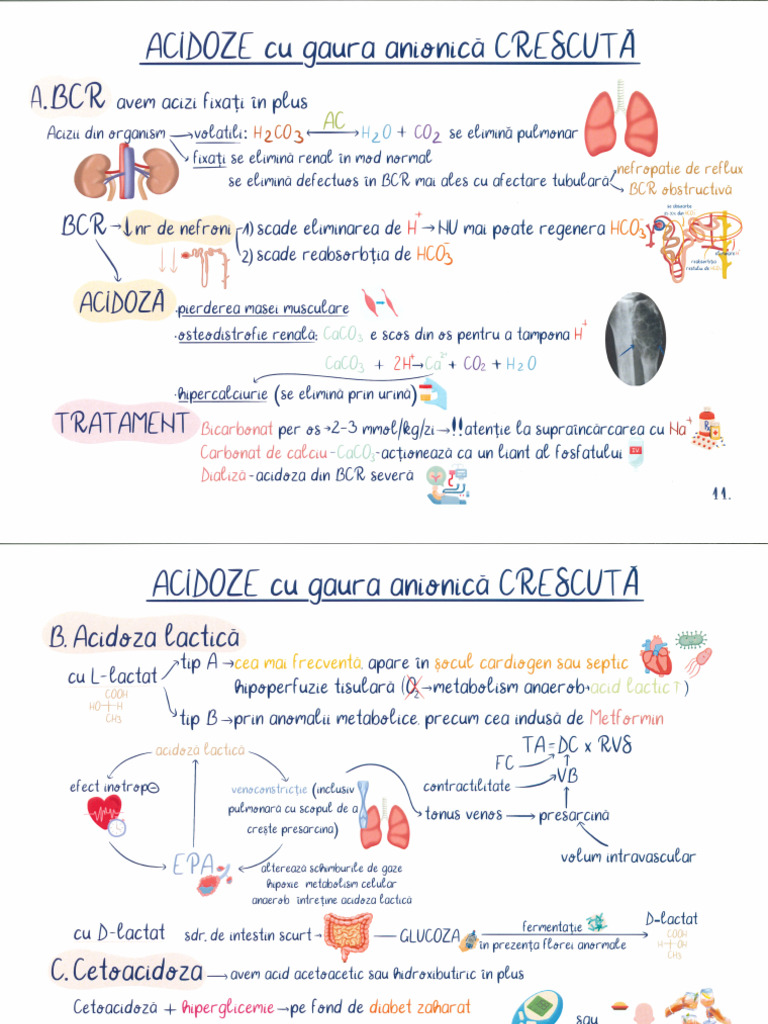 ACIDOZE cu gaura anionică CRESCUTĂ
A. BCR avem acizi fixați în plus
Acizii din organism → volatili: H2CO3 ←AC→ H2O + CO2 se elimină pulmonar
fixați se elimină renal în mod normal
se elimină defectuos în BCR mai ales cu afectare tubulară
nefropatie de reflux
BCR obstructivă
BCR → ↓nr de nefroni
1) scade eliminarea de H+ → NU mai poate regenera HCO3-
2) scade reabsorbția de HCO3-
ACIDOZĂ
·pierderea masei musculare
·osteodistrofie renală: CaCO3 e scos din os pentru a tampona H+
CaCO3 + 2H+ → Ca2+ + CO2 + H2O
·hipercalciurie (se elimină prin urină)
TRATAMENT
Bicarbonat per os → 2-3 mmol/kg/zi → !! atenție la supraîncărcarea cu Na+
Carbonat de calciu - CaCO3 - acționează ca un liant al fosfatului
Dializă - acidoza din BCR severă
11.
ACIDOZE cu gaura anionică CRESCUTĂ
B. Acidoza lactică
cu L-lactat
COOH
HO+H
CH3
tip A → cea mai frecventă, apare în șocul cardiogen sau septic
hipoperfuzie tisulară (O2 → metabolism anaerob → acid lactic ↑)
tip B → prin anomalii metabolice, precum cea indusă de Metformin
acidoză lactică
efect inotrop ⊖
venoconstricție (inclusiv
pulmonară cu scopul de a
crește presarcina)
EPA
alterează schimburile de gaze
hipoxie metabolism celular
anaerob întreține acidoza lactică
TA = DC x RVS
FC
VB
contractilitate
tonus venos → presarcină
volum intravascular
cu D-lactat sdr. de intestin scurt → GLUCOZA
fermentație
în prezența florei anormale
D-lactat
COOH
H+OH
CH3
C. Cetoacidoza → avem acid acetoacetic sau hidroxibutiric în plus
Cetoacidoză + hiperglicemie → pe fond de diabet zaharat
sau